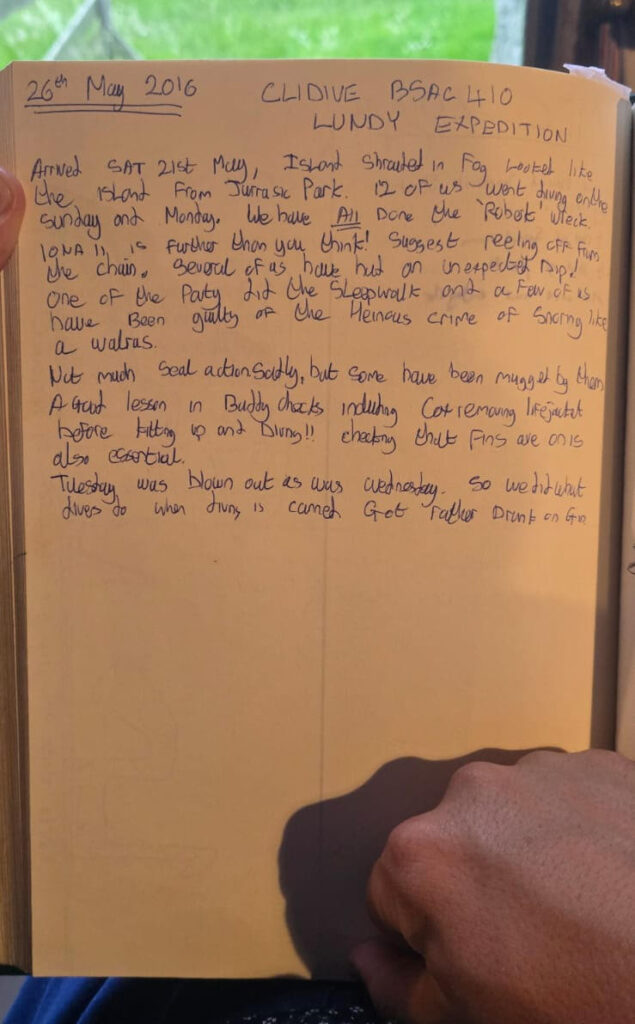 26th May 2016 CLIDIVE BSAC 410
LUNDY EXPEDITION
Arrived SAT 21st May, Island Shrouded in Fog Looked like
the island From Jurrasic Park. 12 of us went diving on the
Sunday and Monday. We have All Done the 'Robert' wreck.
IONA II is further than you think! Suggest reeling off from
the chain. Several of us have had an unexpected Dip!
One of the Party did the Sleepwalk and a Few of us
have Been guilty of the Heinous crime of Snoring like
a walras.
Not much Seal action Sadly, but some have been mugged by them
A Good lesson in Buddy checks including removing lifejacket
before kitting up and Diving!! checking that Fins are on is
also essential.
Tuesday was blown out as was wednesday. So we did what
divers do when diving is canned. Got rather Drunk on Gin